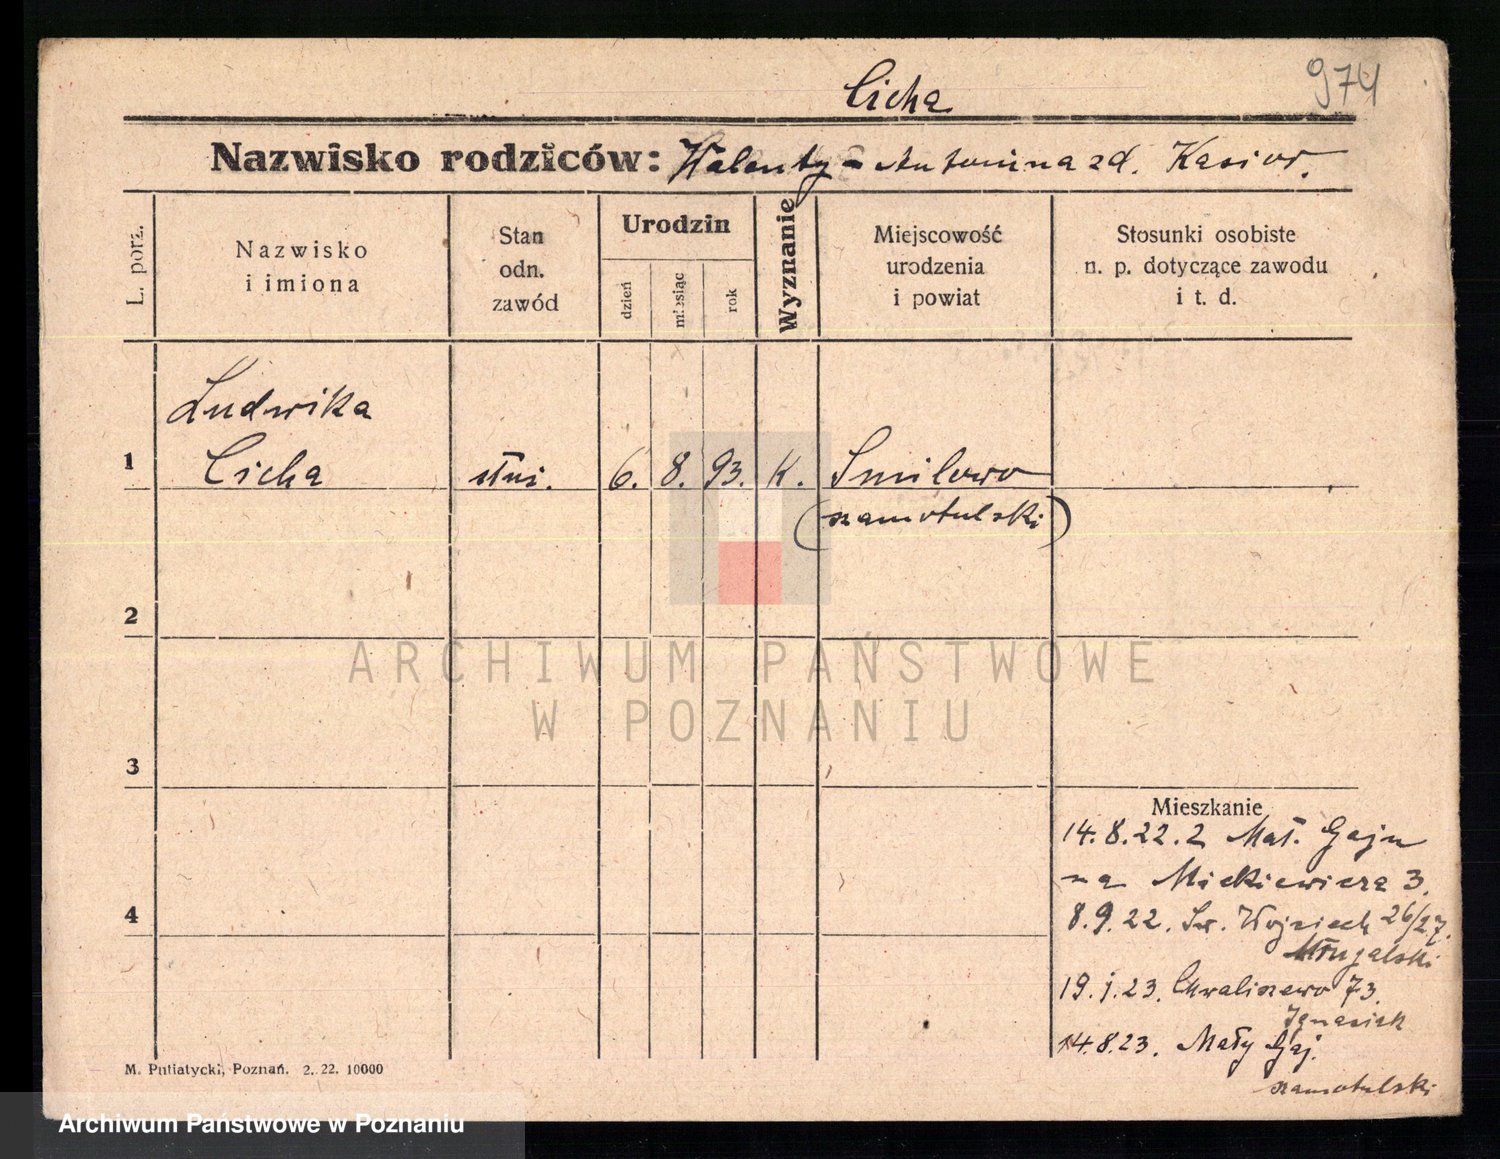 Cicha 974
Nazwisko rodziców: Walenty - Antonina zd. Kasior.
L. porz.
Nazwisko
i imiona
Stan
odn.
zawód
Urodzin
dzień
miesiąc
rok
Wyznanie
Miejscowość
urodzenia
i powiat
Stosunki osobiste
n. p. dotyczące zawodu
i t. d.
Ludwika
1 Cicha służ. 6. 8. 93. K. Smilowo
(szamotulski)
2
ARCHIWUM PAŃSTWOWE
W POZNANIU
3
Mieszkanie
14.8.22. z Mał. Gaju
na Mickiewicza 3.
4
8.9.22. Św. Wojciech 26/27.
Mrugalski
19.1.23. Chwaliszewo 73.
Ignasiak
14.8.23. Mały Gaj.
szamotulski
M. Putiatycki, Poznań. 2. 22. 10000
Archiwum Państwowe w Poznaniu